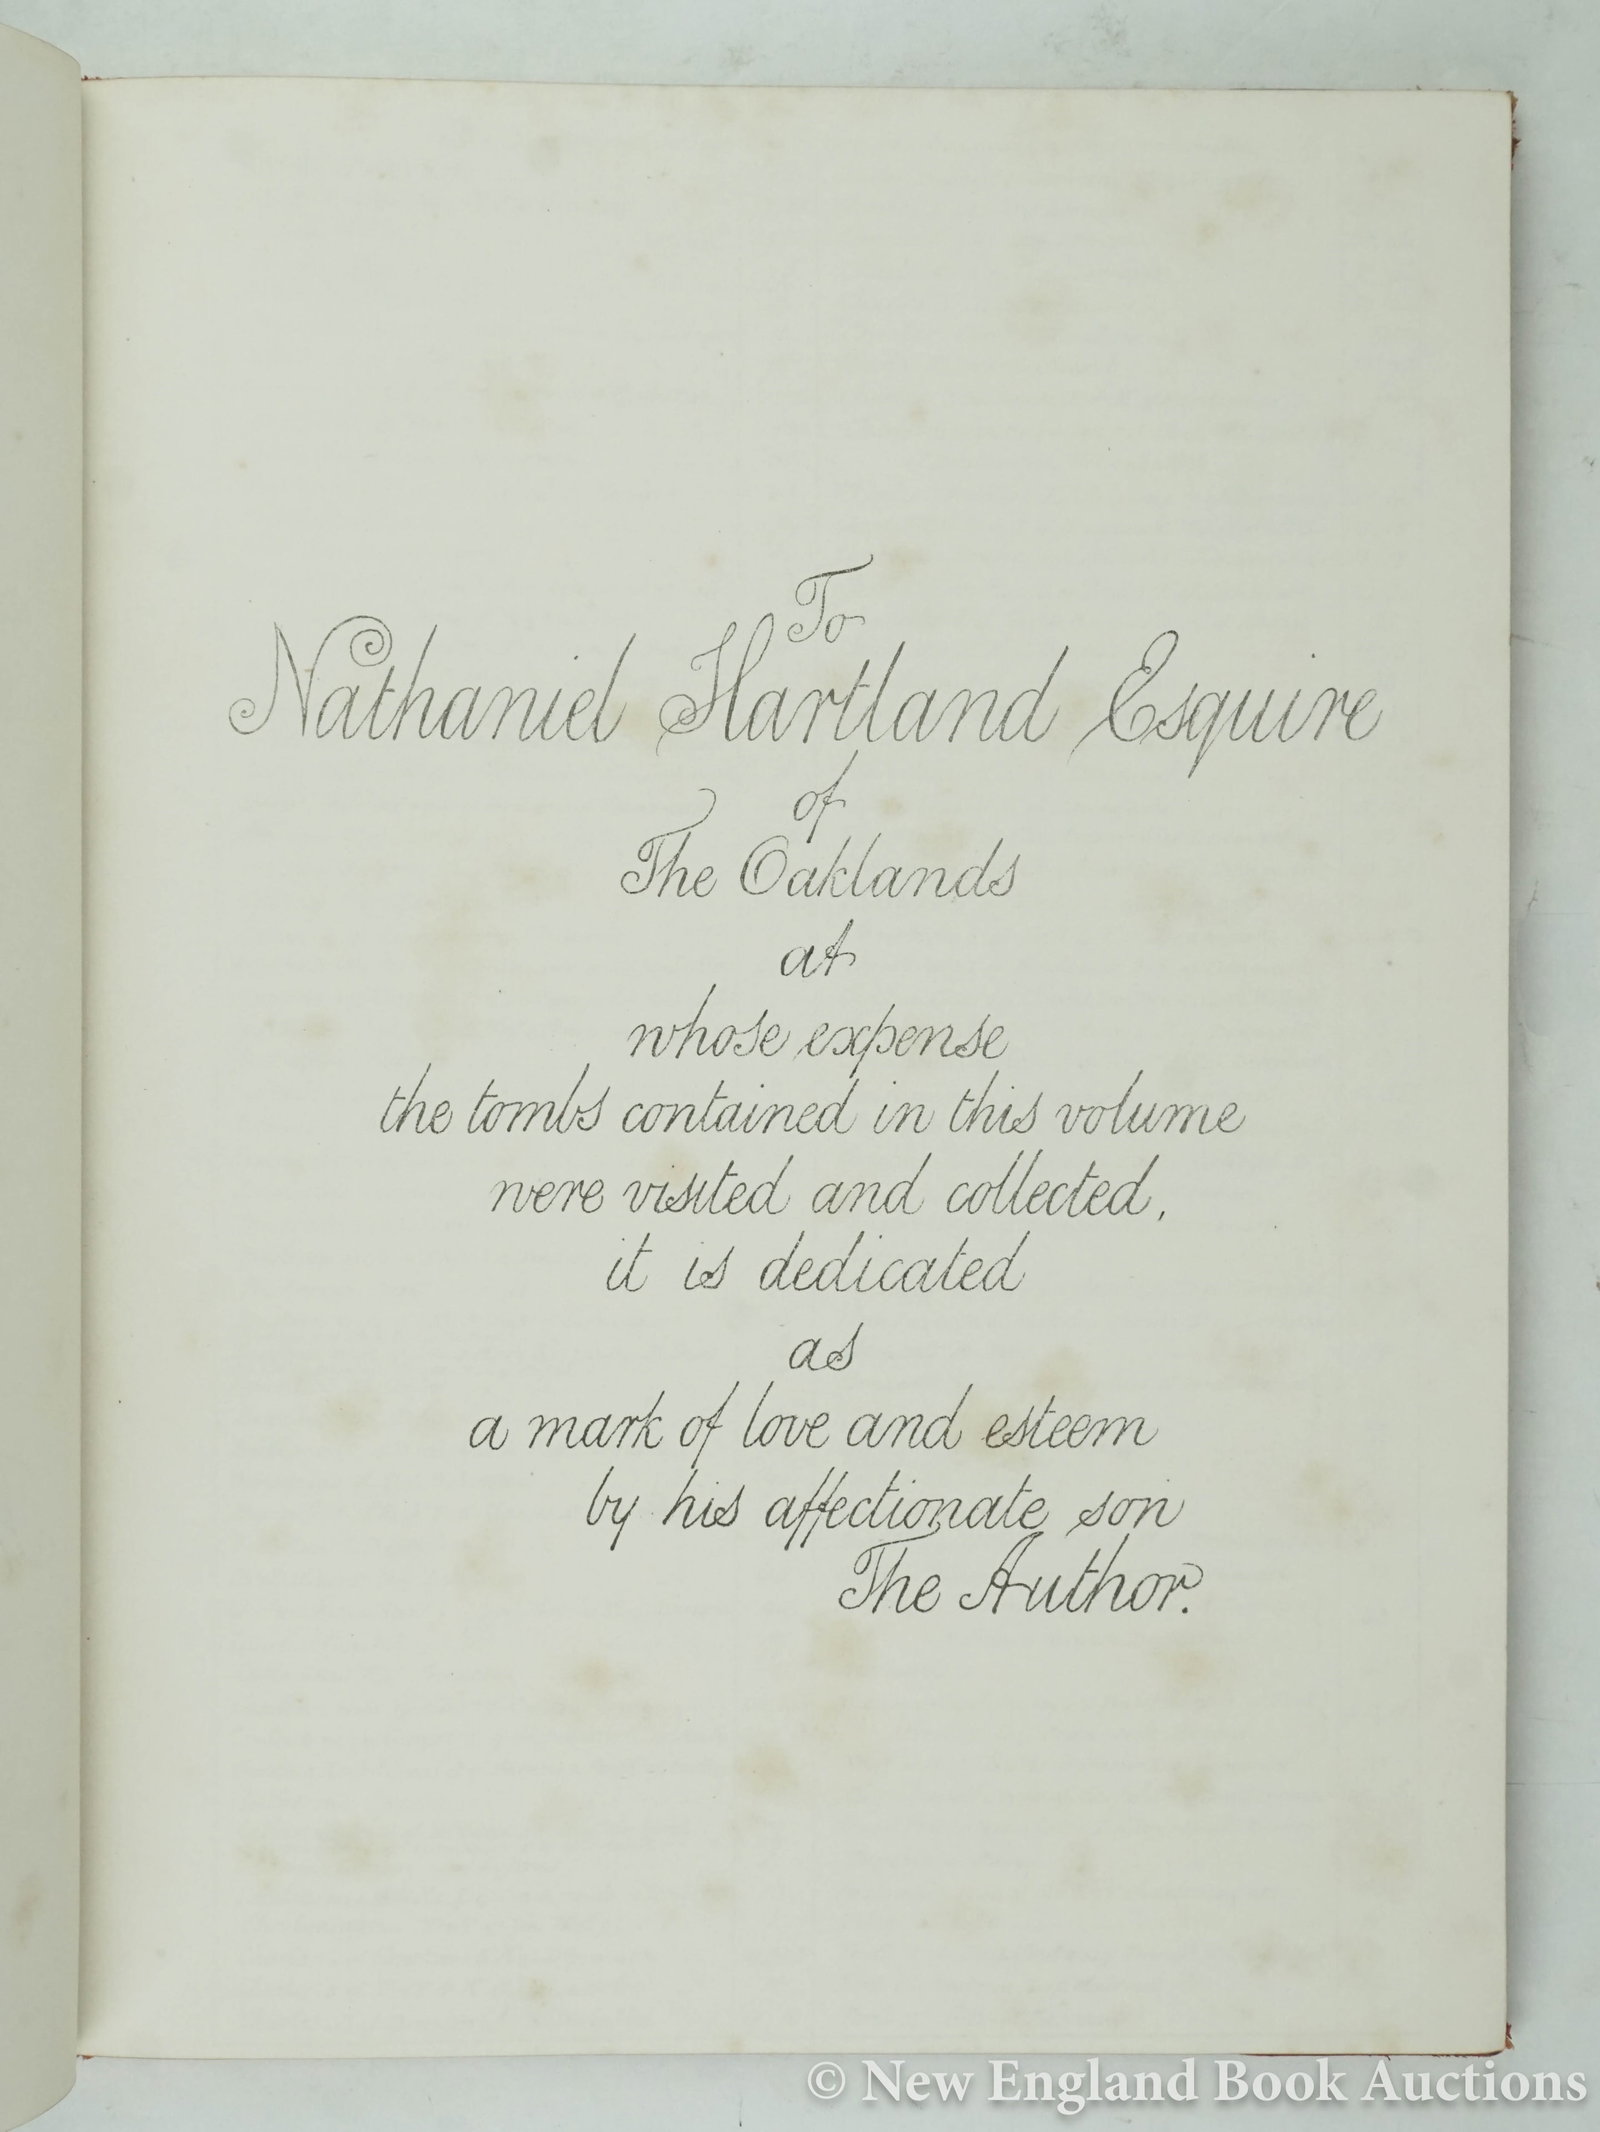 To
Nathaniel Hartland Esquire
of
The Oaklands
at
whose expense
the tombs contained in this volume
were visited and collected,
it is dedicated
as
a mark of love and esteem
by his affectionate son
The Author.
© New England Book Auctions